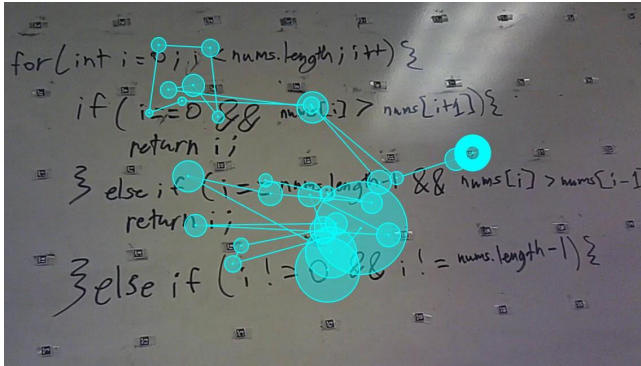 for(int i=0; i < nums.length; i++){
if(i==0 && nums[i] > nums[i+1]){
return i;
} else if (i== nums.length-1 && nums[i] > nums[i-1]
return i;
}else if (i!=0 && i!= nums.length-1){